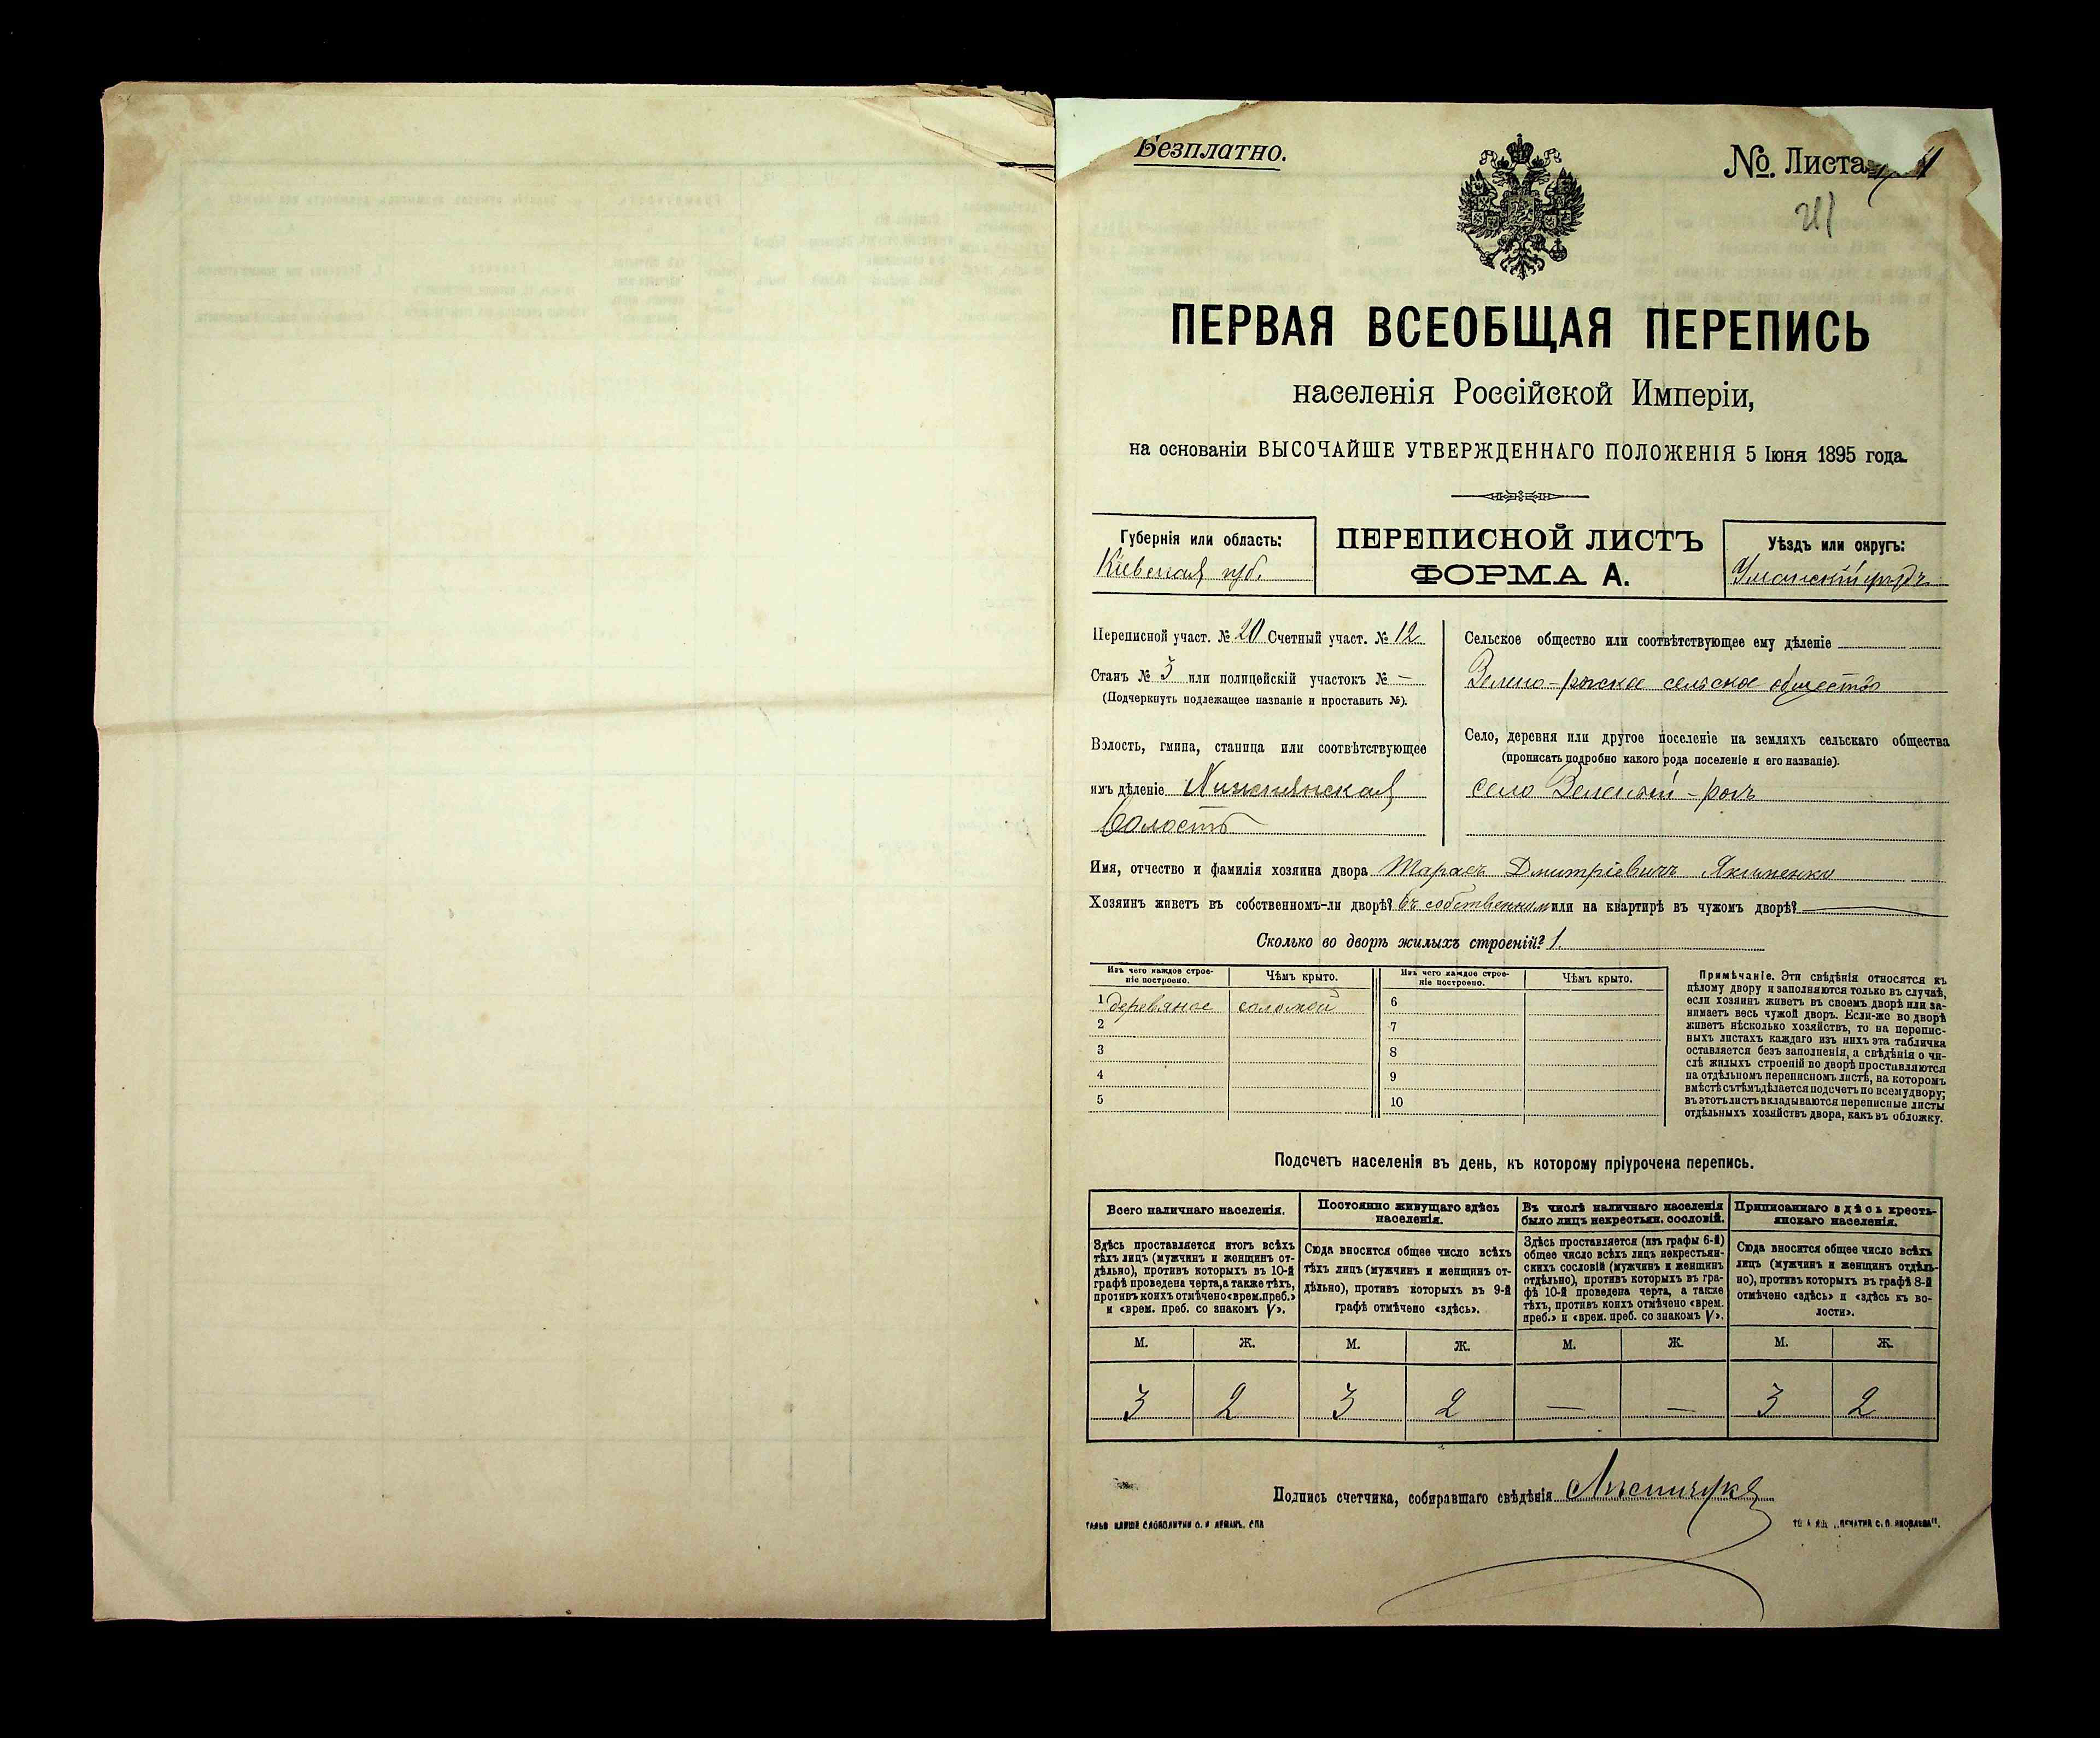 Безплатно.
№. Листа
21
ПЕРВАЯ ВСЕОБЩАЯ ПЕРЕПИСЬ
населенія Россійской Имперіи,
на основаніи ВЫСОЧАЙШЕ УТВЕРЖДЕННАГО ПОЛОЖЕНІЯ 5 Іюня 1895 года.
Губернія или область:
Кіевская губ.
ПЕРЕПИСНОЙ ЛИСТЪ
ФОРМА А.
Уѣздъ или округъ:
Уманскій уѣздъ
Переписной участ. № 20 Счетный участ. № 12
Станъ № 3 или полицейскій участокъ № —
(Подчеркнуть подлежащее названіе и проставить №).
Волость, гмина, станица или соотвѣтствующее
имъ дѣленіе
Волость
Сельское общество или соотвѣтствующее ему дѣленіе
Зелено-рогское сельское общество
Село, деревня или другое поселеніе на земляхъ сельскаго общества
(прописать подробно какого рода поселеніе и его названіе).
село Зеленый-рогъ
Имя, отчество и фамилія хозяина двора Тарасъ Дмитріевичъ Якименко
Хозяинъ живетъ въ собственномъ-ли дворѣ? въ собственномъ или на квартирѣ въ чужомъ дворѣ? —
Сколько во дворѣ жилыхъ строеній? 1.
Изъ чего каждое строе-
ніе построено.
Чѣмъ крыто.
Изъ чего каждое строе-
ніе построено.
Чѣмъ крыто.
1 деревяное соломой 6
2 7
3 8
4 9
5 10
Примѣчаніе. Эти свѣдѣнія относятся къ
цѣлому двору и заполняются только въ случаѣ,
если хозяинъ живетъ въ своемъ дворѣ или за-
нимаетъ весь чужой дворъ. Если-же во дворѣ
живетъ нѣсколько хозяйствъ, то на перепис-
ныхъ листахъ каждаго изъ нихъ эта табличка
оставляется безъ заполненія, а свѣдѣнія о чи-
слѣ жилыхъ строеній во дворѣ проставляются
на отдѣльномъ переписномъ листѣ, на которомъ
вмѣстѣ съ тѣмъ дѣлается подсчетъ по всему двору;
въ этотъ листъ вкладываются переписные листы
отдѣльныхъ хозяйствъ двора, какъ въ обложку.
Подсчетъ населенія въ день, къ которому пріурочена перепись.
Всего наличнаго населенія.
Здѣсь проставляется итогъ всѣхъ
тѣхъ лицъ (мужчинъ и женщинъ от-
дѣльно), противъ которыхъ въ 10-й
графѣ проведена черта, а также тѣхъ,
противъ коихъ отмѣчено «врем. преб.»
и «врем. преб. со знакомъ V».
Постоянно живущаго здѣсь
населенія.
Сюда вносится общее число всѣхъ
тѣхъ лицъ (мужчинъ и женщинъ от-
дѣльно), противъ которыхъ въ 9-й
графѣ отмѣчено «здѣсь».
Въ числѣ наличнаго населенія
было лицъ некрестьян. сословій.
Здѣсь проставляется (изъ графы 6-й)
общее число всѣхъ лицъ некрестьян-
скихъ сословій (мужчинъ и женщинъ
отдѣльно), противъ которыхъ въ гра-
фѣ 10-й проведена черта, а также
тѣхъ, противъ коихъ отмѣчено «врем.
преб.» и «врем. преб. со знакомъ V».
Приписаннаго здѣсь кресть-
янскаго населенія.
Сюда вносится общее число всѣхъ
лицъ (мужчинъ и женщинъ отдѣль-
но), противъ которыхъ въ графѣ 8-й
отмѣчено «здѣсь» и «здѣсь къ во-
лости».
М. Ж. М. Ж. М. Ж. М. Ж.
3 2 3 2 — — 3 2
Подпись счетчика, собиравшаго свѣдѣнія